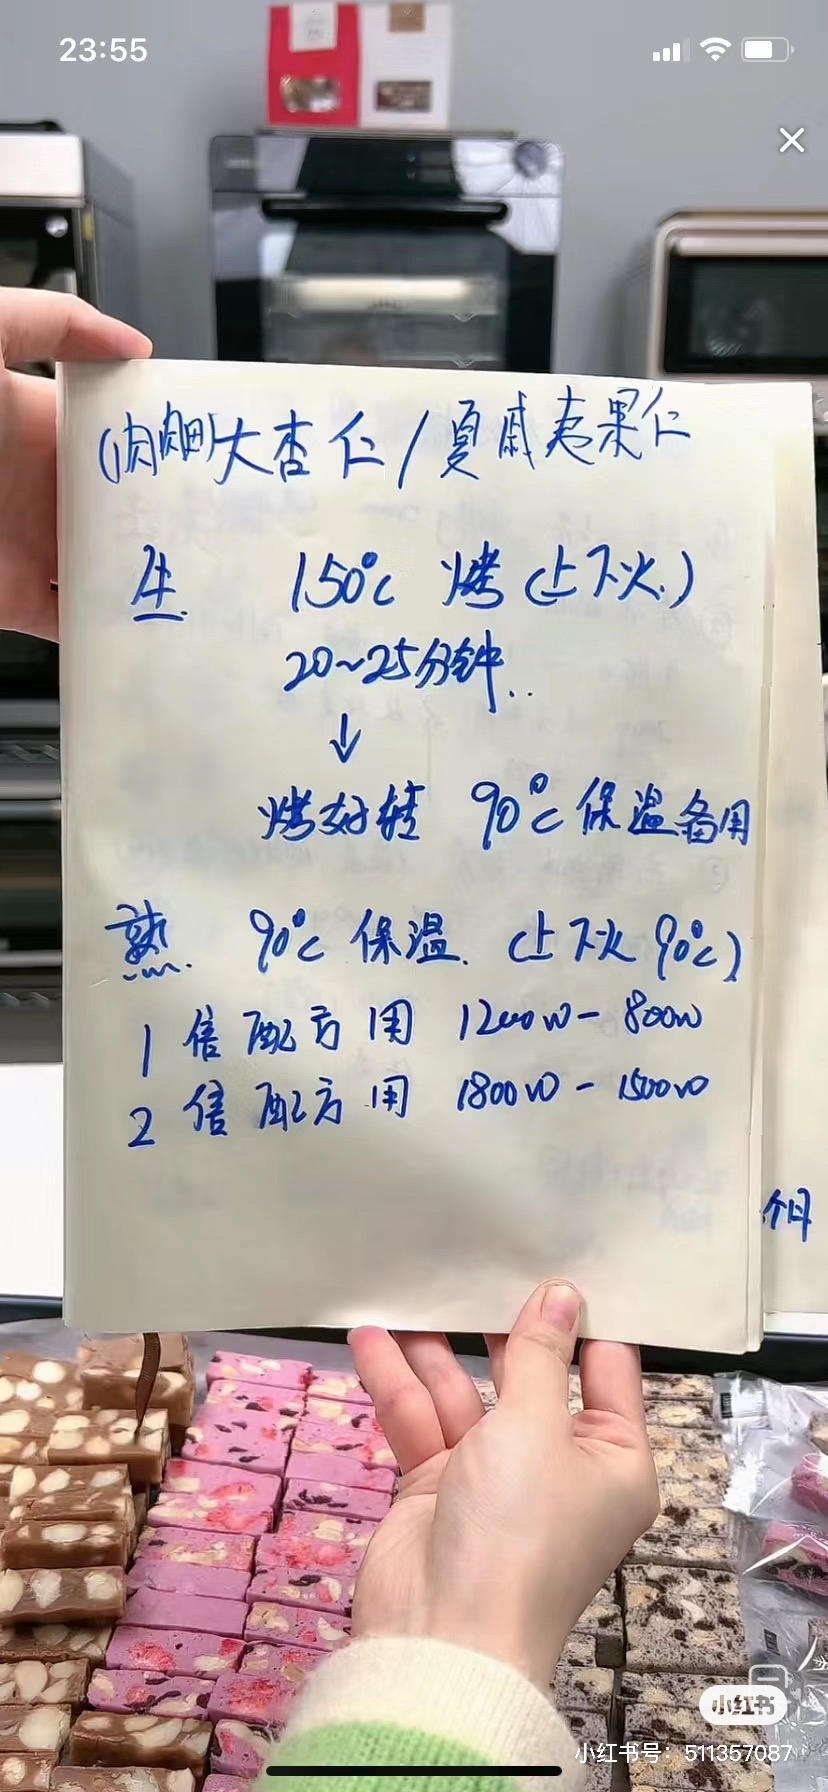 23:55
(肉肉细)大杏仁/夏威夷果仁
生 150℃ 烤(上下火)
20~25分钟..
↓
烤好转 90℃保温备用
熟 90℃保温.(上下火90℃)
1倍配方用 1200W-800W
2倍配方用 1800W-1500W
个月
小红书
小红书号：511357087